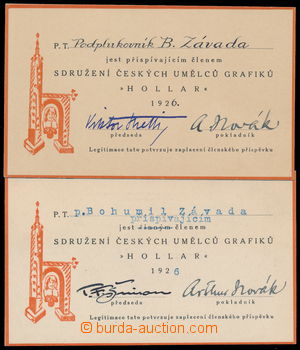 P. T. Podplukovník B. Závada
jest přispívajícím členem
SDRUŽENÍ ČESKÝCH UMĚLCŮ GRAFIKŮ
„HOLLAR“
1926.
A Novák
předseda pokladník
Legitimace tato potvrzuje zaplacení členského příspěvku
P. T. p. Bohumil Závada
přispívajícím
jest činným členem
SDRUŽENÍ ČESKÝCH UMĚLCŮ GRAFIKŮ
„HOLLAR“
1926
T. F. Šimon Arthur Novák
předseda pokladník
Legitimace tato potvrzuje zaplacení členského příspěvku
burda-auction.com